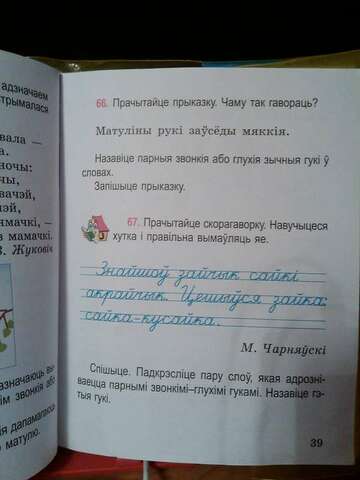 адзначаем
трымалася
вала —
а.
ночы:
чы,
вачэй,
чэй,
ямачкі, —
в мамачкі.
В. Жуковіч
азначаюць вы-
ім звонкія або
ія дапамагаюць
ю матулю.
66. Прачытайце прыказку. Чаму так гавораць?
Матуліны рукі заўсёды мяккія.
Назавіце парныя звонкія або глухія зычныя гукі ў
словах.
Запішыце прыказку.
67. Прачытайце скорагаворку. Навучыцеся
хутка і правільна вымаўляць яе.
Знайшоў зайчык сайкі
акрайчык. Цешыўся зайка:
сайка-кусайка.
М. Чарняўскі
Спішыце. Падкрэсліце пару слоў, якая адрозні-
ваецца парнымі звонкімі–глухімі гукамі. Назавіце гэ-
тыя гукі.
39